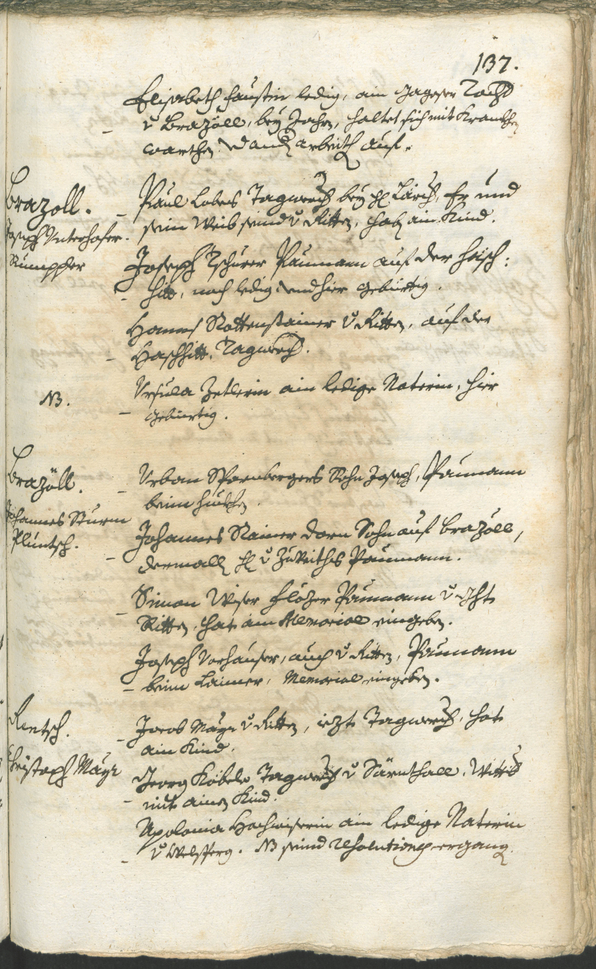 137.
Elisabeth Faustin ledig, ain
v Brazöll, bey Jahrn, haltet sich mit Krankhen
warthen vnd arbeith auf.
Brazoll.
Joseph Unterhofer.
Rumpfer
Paul Lobes Tagwerch bey H: Er und
sein Weib seind v Ritten, hat ain Kind.
Joseph Tschurer Paumann auf der Hasch:
hitt, noch ledig vnd hier gebürtig.
Hannß Rottenstainer v Ritten, auf der
Haschhitt, Tagwerch.
NB.
Ursula Zetlerin ain ledige Naterin, hier
gebürtig.
Brazöll.
Johannes Sturm
Pluntsch.
Urban Spornbergers Sohn Joseph, Paumann
beim
Johannes Rainer dorn Sohn auf Brazöll,
dermalß H: v Paumann.
Simon Weser Flözer Paumann v
Ritten, hat ain Memorial eingeben.
Joseph Vorhauser, auch v Ritten, Paumann
beim Laimer, Memorial eingeben.
Rentsch.
Christoph Mayr
Jacob Mayr v Ritten, iezt Tagwerch, hat
ain Kind.
Georg Köbele Tagwerch v Särnthall, Wittib
mit ainem Kind.
Apolonia Hochwiserin ain ledige Naterin
v Welsperg. NB seind resolutiones ergangen